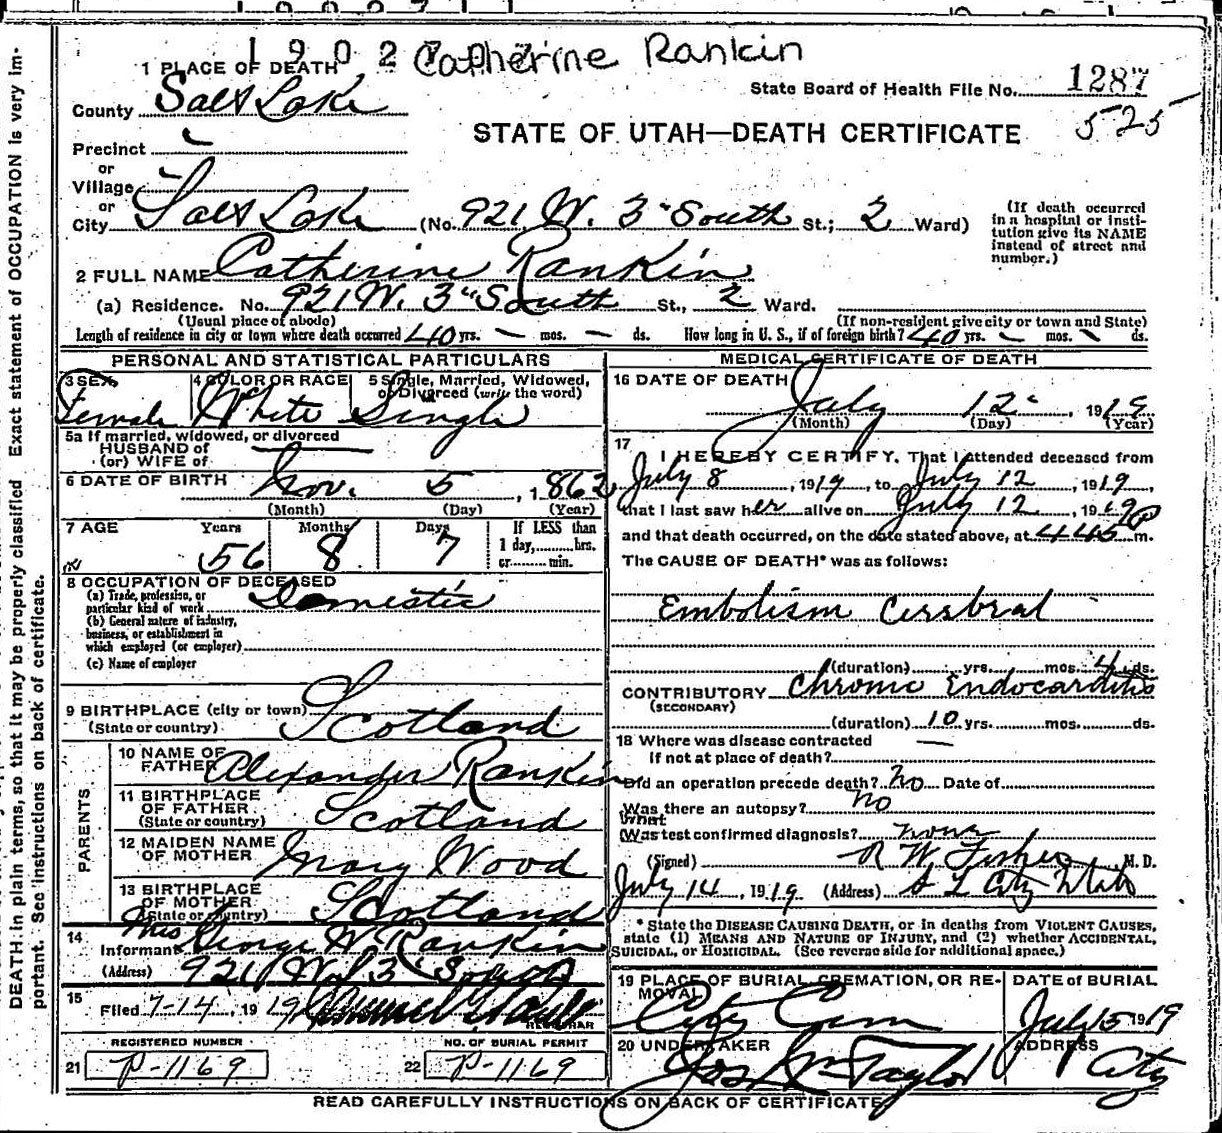 1902 Catherine Rankin
1 PLACE OF DEATH
State Board of Health File No. 1287
County Salt Lake
525
STATE OF UTAH—DEATH CERTIFICATE
Precinct
or
Village
or
City Salt Lake (No. 921 W. 3" South St.; 2 Ward)
(If death occurred in a hospital or institution give its NAME instead of street and number.)
2 FULL NAME Catherine Rankin
(a) Residence. No. 921 W. 3" South St., 2 Ward.
(Usual place of abode) (If non-resident give city or town and State)
Length of residence in city or town where death occurred 40 yrs. — mos. — ds. How long in U. S., if of foreign birth? 40 yrs. — mos. \ ds.
PERSONAL AND STATISTICAL PARTICULARS
3 SEX Female
4 COLOR OR RACE White
5 Single, Married, Widowed, or Divorced (write the word) Single
5a If married, widowed, or divorced
HUSBAND of
(or) WIFE of
6 DATE OF BIRTH Nov. 5, 1862
(Month) (Day) (Year)
7 AGE Years 56 Months 8 Days 7 If LESS than
1 day,.........hrs.
or............min.
8 OCCUPATION OF DECEASED
(a) Trade, profession, or
particular kind of work Domestic
(b) General nature of industry,
business, or establishment in
which employed (or employer)
(c) Name of employer
9 BIRTHPLACE (city or town)
(State or country) Scotland
PARENTS
10 NAME OF
FATHER Alexander Rankin
11 BIRTHPLACE
OF FATHER
(State or country) Scotland
12 MAIDEN NAME
OF MOTHER Mary Wood
13 BIRTHPLACE
OF MOTHER
(State or country) Scotland
14 Informant Mrs George W. Rankin
(Address) 921 W 3" South
15 Filed 7-14, 1919
REGISTRAR
REGISTERED NUMBER
21 P-1169
NO. OF BURIAL PERMIT
22 P-1169
MEDICAL CERTIFICATE OF DEATH
16 DATE OF DEATH
July 12, 1919
(Month) (Day) (Year)
17 I HEREBY CERTIFY, That I attended deceased from
July 8, 1919, to July 12, 1919,
that I last saw her alive on July 12, 1919
and that death occurred, on the date stated above, at 445 P m.
The CAUSE OF DEATH* was as follows:
Embolism Cerebral
(duration) yrs. mos. 4 ds.
CONTRIBUTORY Chronic Endocarditis
(SECONDARY)
(duration) 10 yrs. mos. ds.
18 Where was disease contracted —
If not at place of death?
Did an operation precede death? No Date of
Was there an autopsy? No
What
(Was test confirmed diagnosis? none
(Signed) R W. Fisher, M. D.
July 14, 1919 (Address) S L City Utah
* State the DISEASE CAUSING DEATH, or in deaths from VIOLENT CAUSES,
state (1) MEANS AND NATURE OF INJURY, and (2) whether ACCIDENTAL,
SUICIDAL, or HOMICIDAL. (See reverse side for additional space.)
19 PLACE OF BURIAL, CREMATION, OR RE-
MOVAL City Cem
DATE of BURIAL
July 15 1919
20 UNDERTAKER
Jos W Taylor
ADDRESS
City
READ CAREFULLY INSTRUCTIONS ON BACK OF CERTIFICATE
DEATH in plain terms, so that it may be properly classified. Exact statement of OCCUPATION is very im-
portant. See instructions on back of certificate.